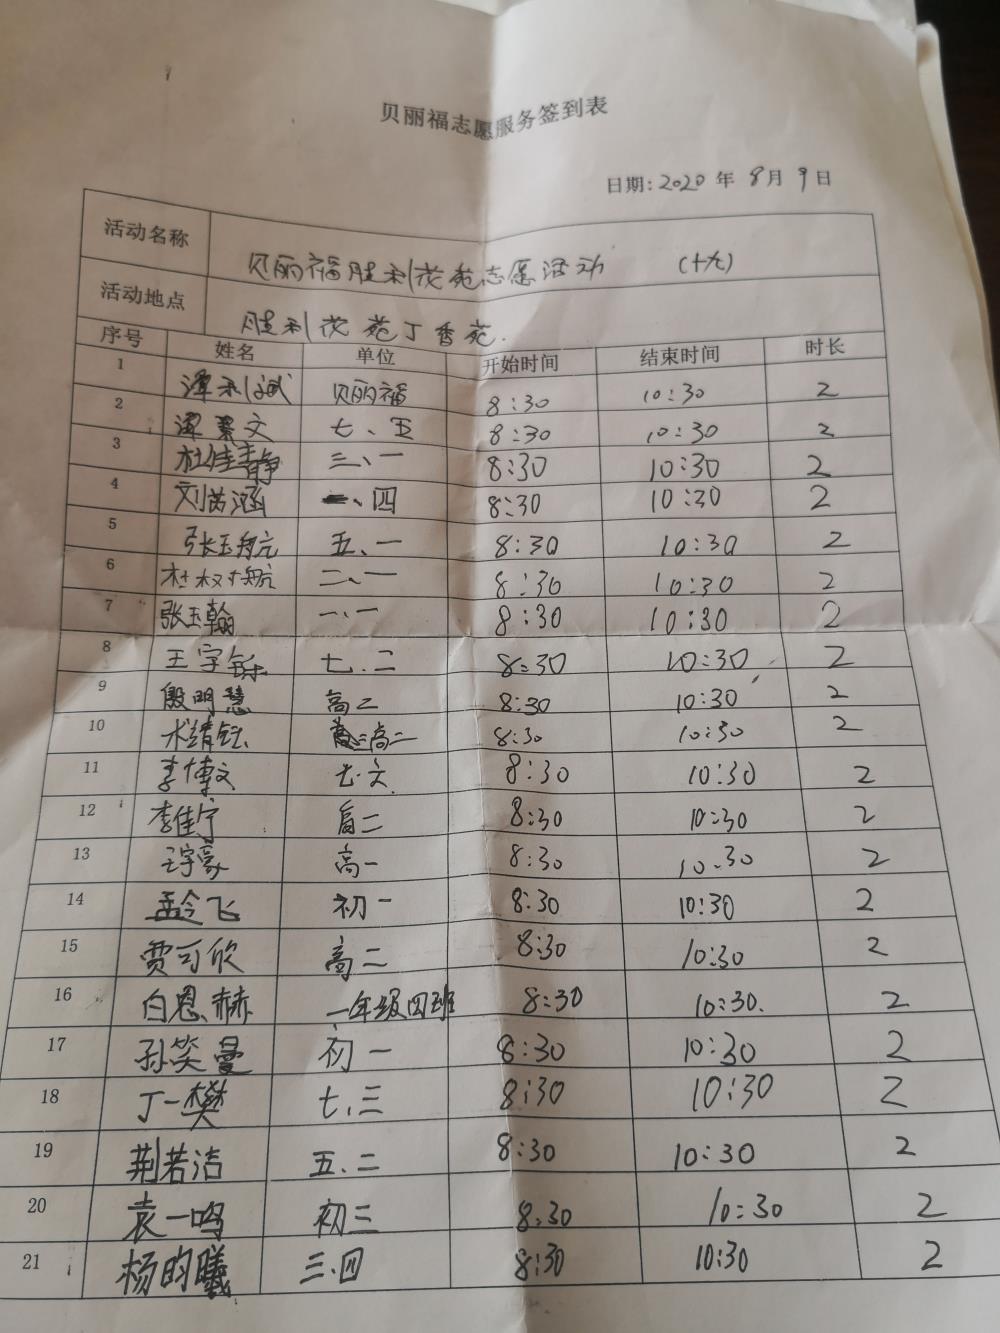 贝丽福志愿服务签到表
日期: 2020 年 8 月 9 日
活动名称 贝丽福胜利花苑志愿活动 (十九)
活动地点 胜利花苑丁香苑.
序号 姓名 单位 开始时间 结束时间 时长
1 谭利斌 贝丽福 8:30 10:30 2
2 谭景文 七、五 8:30 10:30 2
3 杜佳静 三、一 8:30 10:30 2
4 刘芮涵 、四 8:30 10:30 2
5 张玉航 五、一 8:30 10:30 2
6 杜权航 二、一 8:30 10:30 2
7 张玉翰 一、一 8:30 10:30 2
8 王宇铄 七.二 8:30 10:30 2
9 殷明慧 高二 8:30 10:30 2
10 靖钰 高二 8:30 10:30 2
11 李博文 七.六. 8:30 10:30 2
12 李佳宁 高二 8:30 10:30 2
13 王宇豪 高一 8:30 10:30 2
14 孟令飞 初一 8:30 10:30 2
15 贾可欣 高二 8:30 10:30 2
16 白恩赫 一年级四班 8:30 10:30. 2
17 孙笑曼 初一 8:30 10:30 2
18 丁一樊 七、三 8:30 10:30 2
19 荆若洁 五.二 8:30 10:30 2
20 袁一鸣 初三 8:30 10:30 2
21 杨昀曦 三、四 8:30 10:30 2